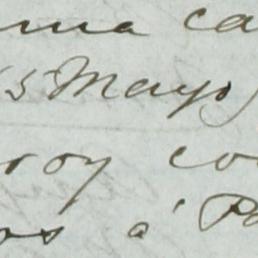 ma ca
(5 Mayo)
roy co
os á Pa